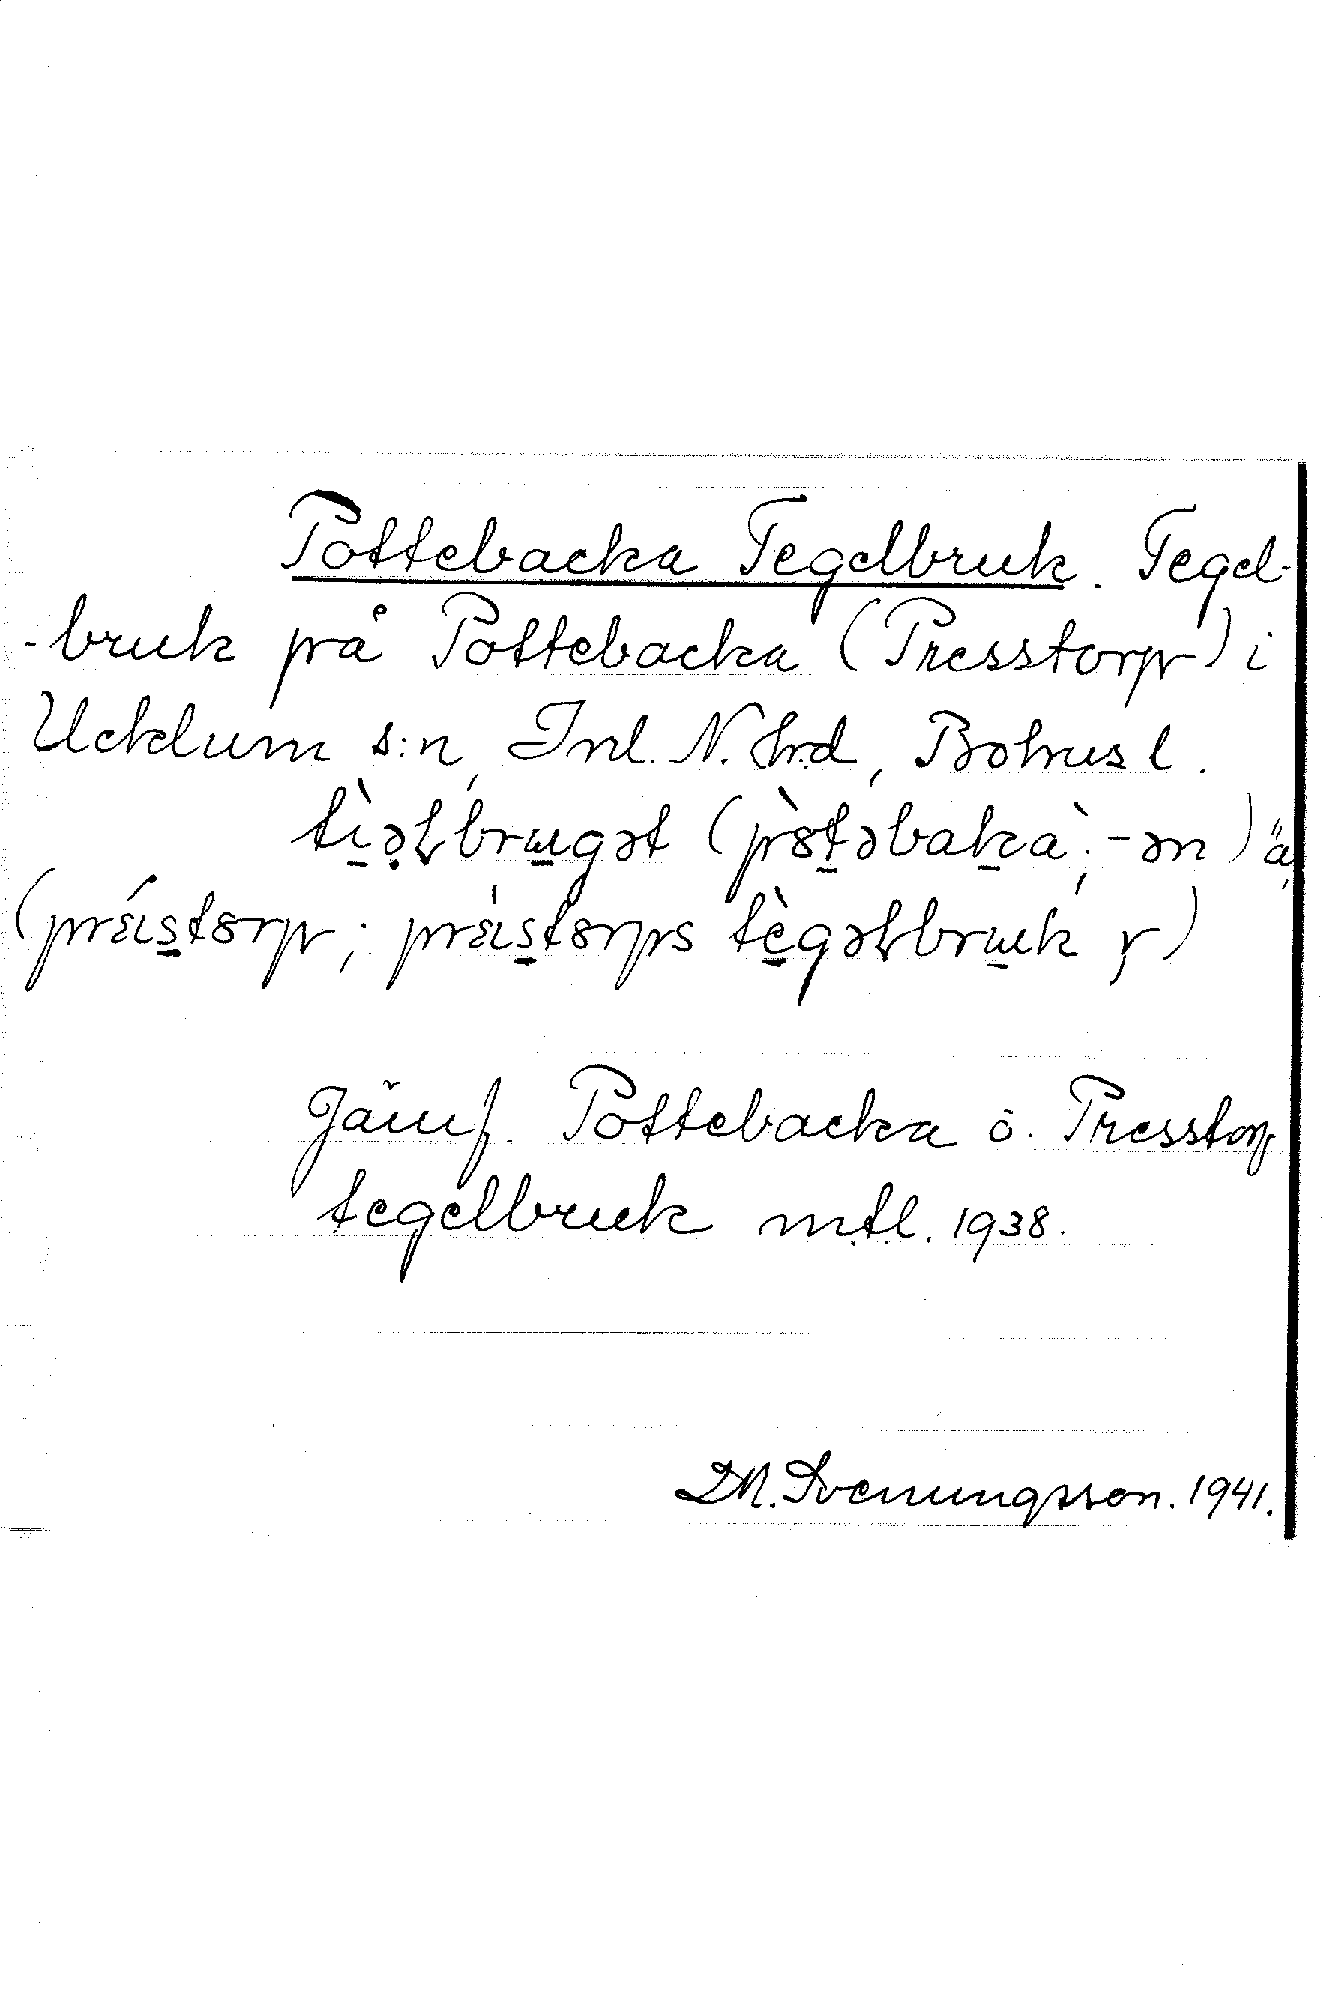 Pottebacka Tegelbruk. Tegel-
-bruk på Pottebacka (Presstorp) i
Ucklum s:n, Inl. N. Hrd, Bohusl.
tì̠əɫbrɯ̠gət (pɞ̀t̠əbak̠a; -ən) ä,
(préis̠tɞrp; prèis̠tɞrps tè̠gəɫbrɯ̠k y)
Jämf. Pottebacka o. Presstorp
tegelbruk mtl. 1938.
D.M. Svenungsson. 1941.